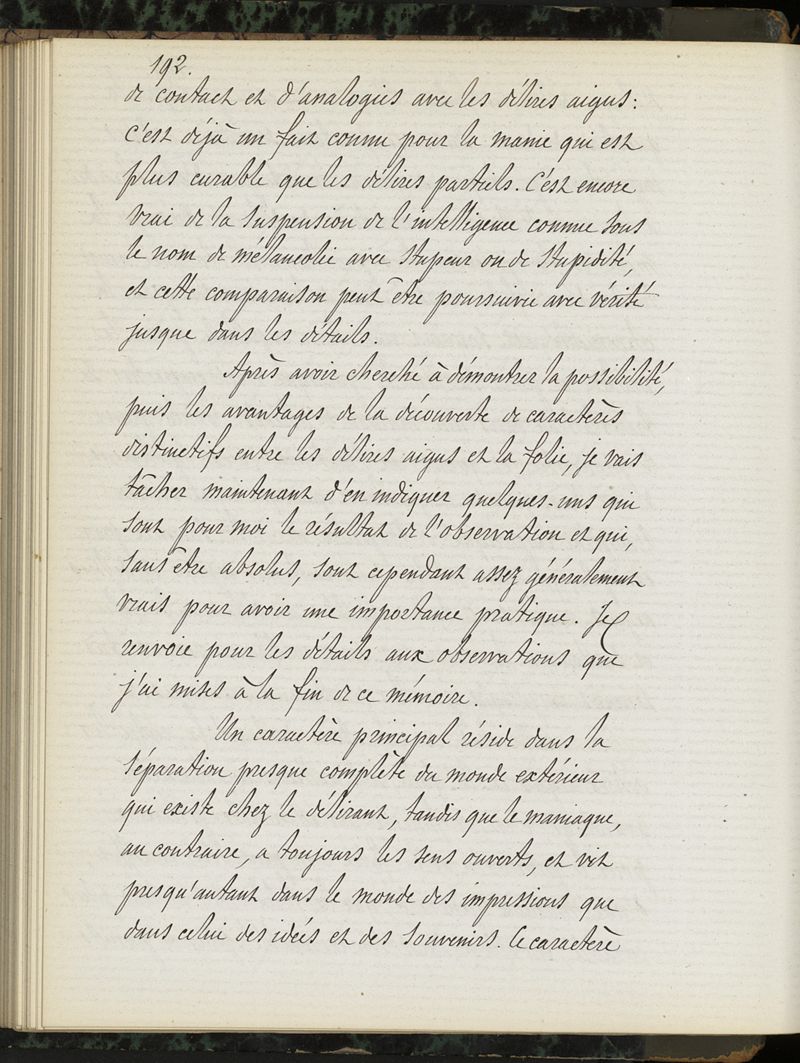 192.
de contact et d'analogies avec les délires aigus:
c'est déjà un fait connu pour la manie qui est
plus curable que les délires partiels. C'est encore
vrai de la suspension de l'intelligence connue sous
le nom de mélancolie avec stupeur ou de stupidité,
et cette comparaison peut être poursuivie avec vérité
jusque dans les détails.
Après avoir cherché à démontrer la possibilité,
puis les avantages de la découverte de caractères
distinctifs entre les délires aigus et la folie, je vais
tâcher maintenant d'en indiquer quelques-uns qui
sont pour moi le résultat de l'observation et qui,
sans être absolus, sont cependant assez généralement
vrais pour avoir une importance pratique. Je
renvoie pour les détails aux observations que
j'ai mises à la fin de ce mémoire.
Un caractère principal réside dans la
séparation presque complète du monde extérieur
qui existe chez le délirant, tandis que le maniaque,
au contraire, a toujours les sens ouverts, et vit
presqu'autant dans le monde des impressions que
dans celui des idées et des souvenirs. Ce caractère